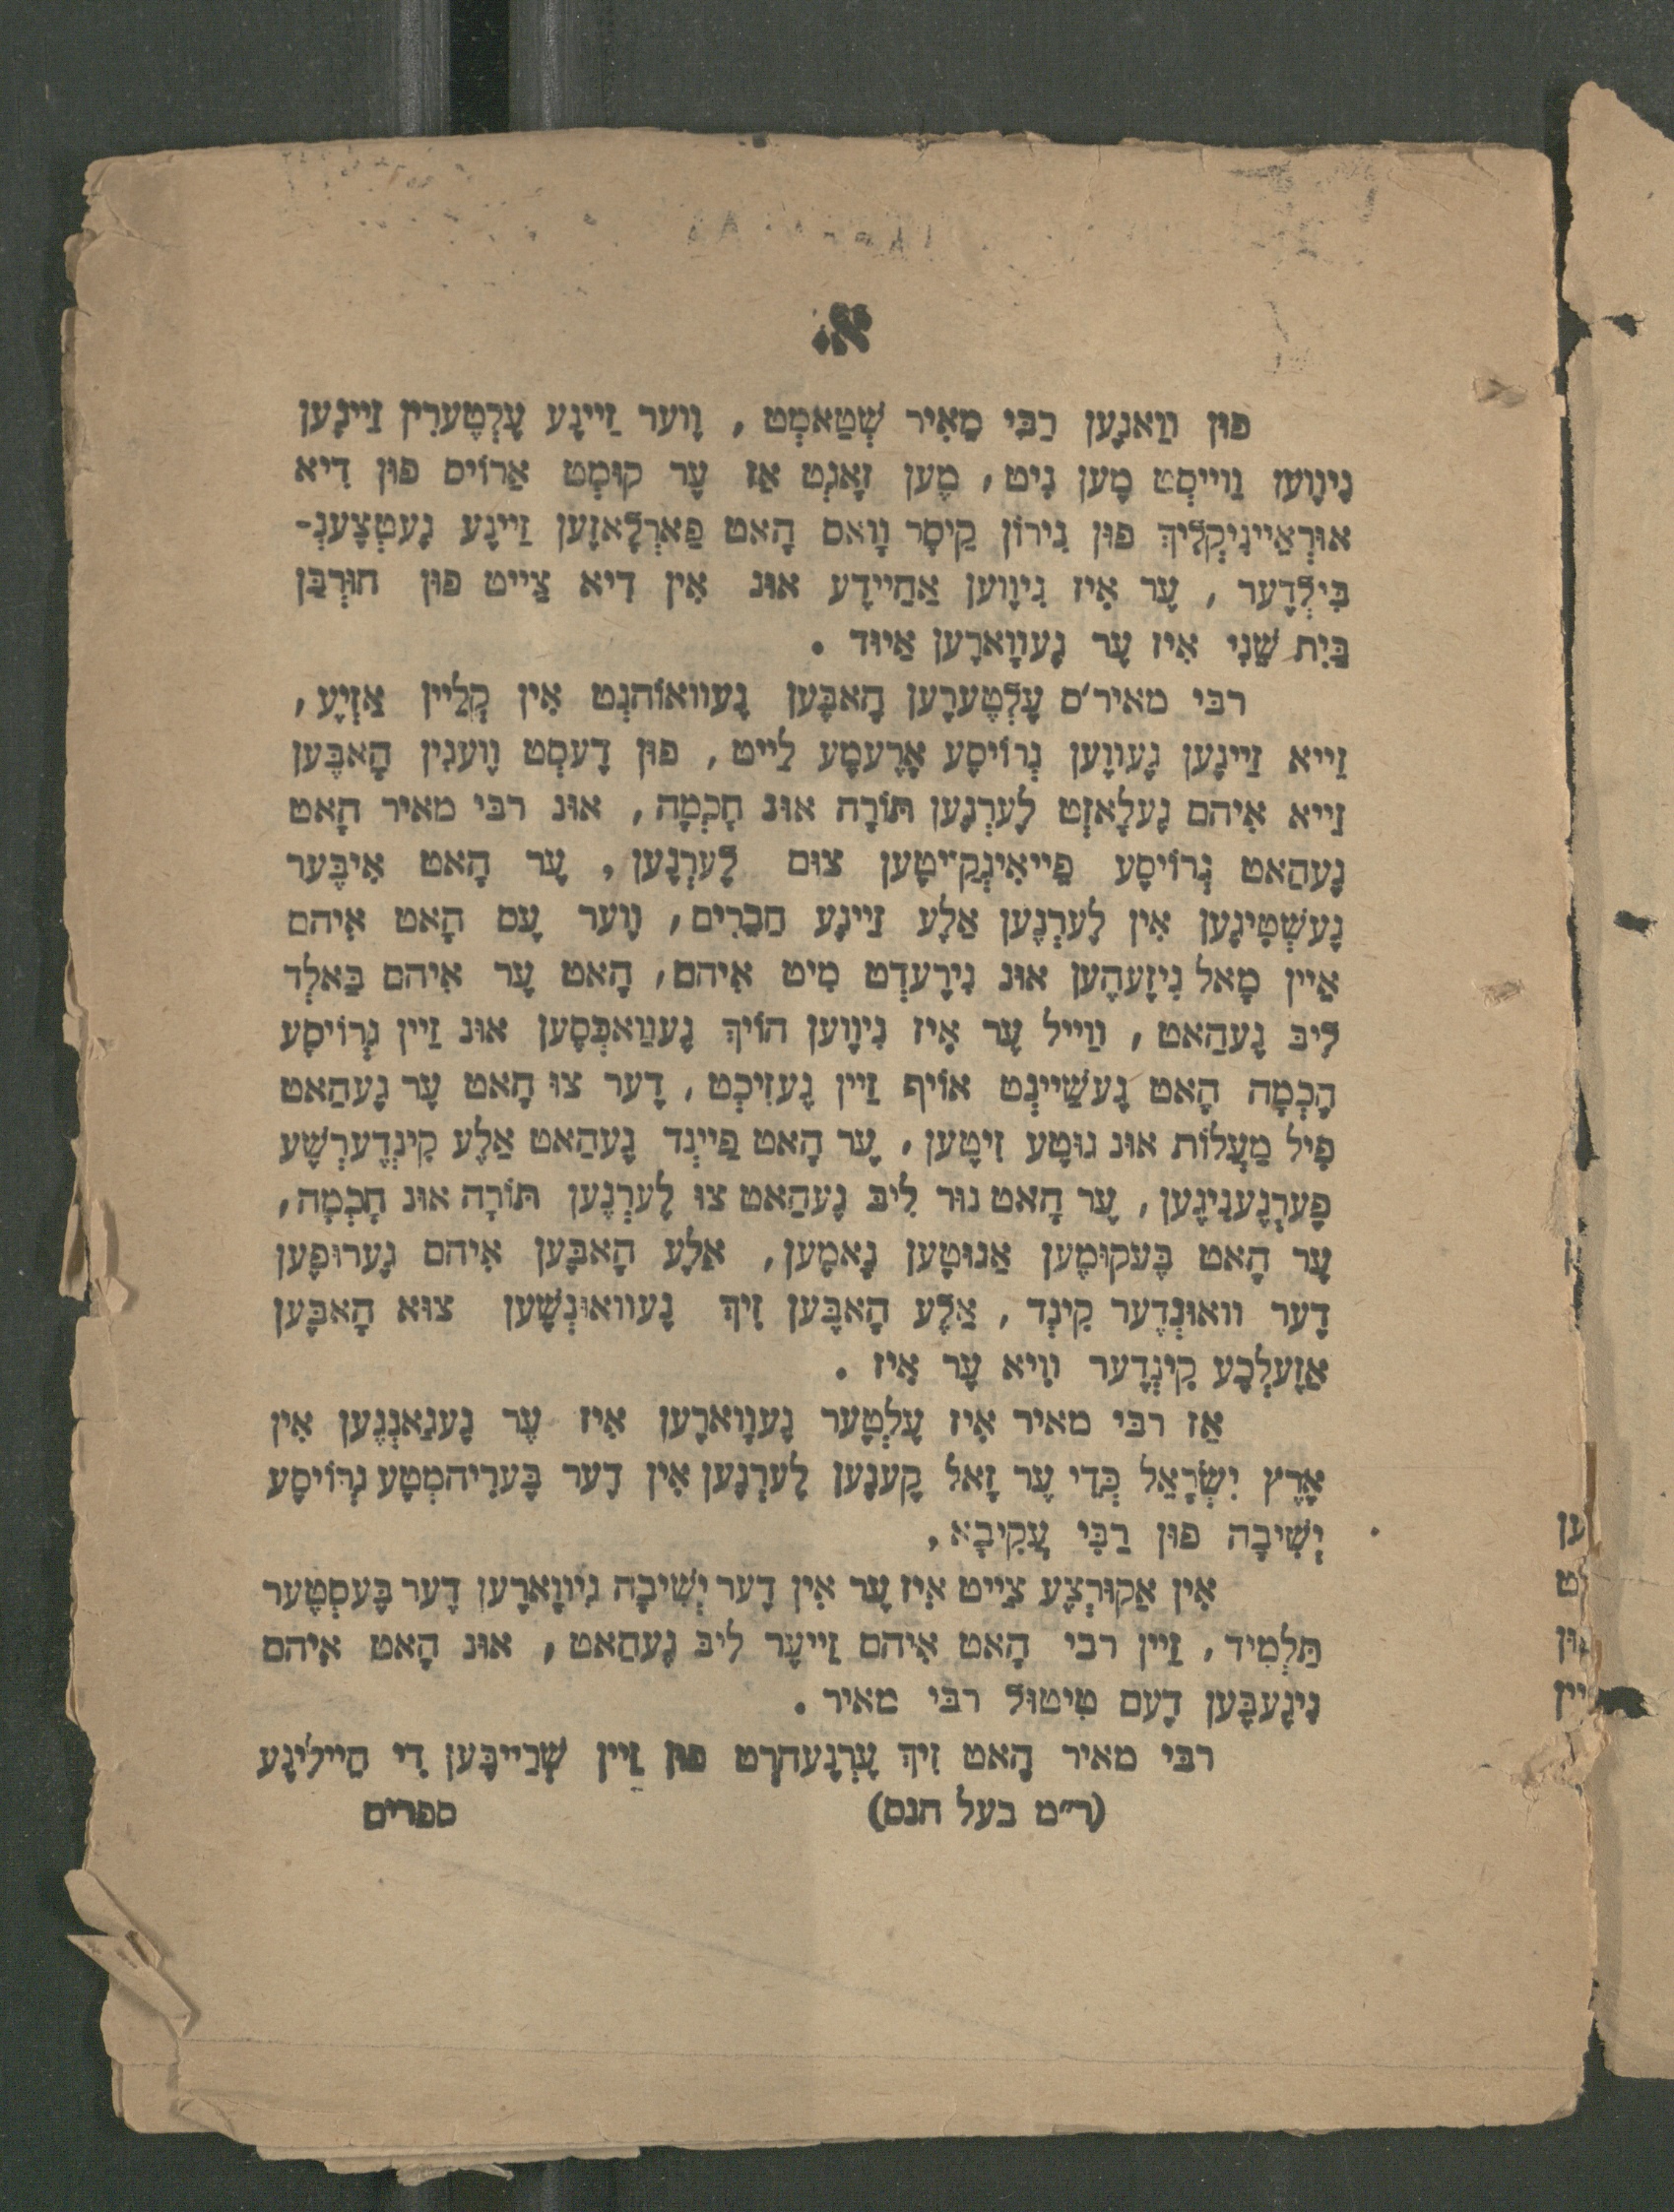 א.
פון וַואנֶען רַבִּי מֵאִיר שְׁטַאמְט, וֶוער זַיינֶע עֶלְטֶערִין זַיינֶען
גִיוֶוען וַוייסְט מֶען נִיט, מֶען זָאגְט אַז עֶר קוּמְט אַרוֹיס פון דִיא
אוּרְאַיינִיקְלִיךְ פון נִירוֹן קֵיסָר וָואס הָאט פַארְלָאזֶען זַיינֶע געֶטְצֶענְ-
בִּילְדֶער, עֶר אִיז גִיוֶוען אַהַיידֶע אוּנ אִין דִיא צַייט פון חוּרְבַּן
בַּיִת שֵׁנִי אִיז עֶר געֶוָוארֶען אַיוּד.
רבי מאיר׳ס עֶלְטֶערֶען הָאבֶּען געֶוואוֹהנְט אִין קְלַיין אַזְיֶע,
זַייא זַיינֶען געֶוֶוען גְרוֹיסֶע אָרֶעמֶע לַייט, פון דֶעסְט וֶועגִין הָאבֶּען
זַייא אִיהם געֶלָאזְט לֶערְנֶען תּוֹרָה אוּנ חָכְמָה, אוּנ רבי מאיר הָאט
געֶהַאט גְרוֹיסֶע פֵייאִיגְקַייטֶען צוּם לֶערְנֶען, עֶר הָאט אִיבֶּער
געֶשְׁטִיגֶען אִין לֶערְנֶען אַלֶע זַיינֶע חַבֵרִים, וֶוער עֶס הָאט אִיהם
אַיין מָאל גִיזֶעהֶען אוּנ גִירֶעדְט מִיט אִיהם, הָאט עֶר אִיהם בַּאלְד
לִיבּ געֶהַאט, וַוייל עֶר אִיז גִיוֶוען הוֹיךְ געֶוַואכְּסֶען אוּנ זַיין גְרוֹיסֶע
הָכְמָה הָאט געֶשַׁיינְט אוֹיף זַיין געֶזִיכְט, דֶער צוּ הָאט עֶר געֶהַאט
פִיל מַעֲלוֹת אוּנ גוּטֶע זִיטֶען, עֶר הָאט פַיינְד געֶהַאט אַלֶע קִינְדֶערְשֶׁע
פֶערְגנֶעגִינֶען, עֶר הָאט נוּר לִיבּ געֶהַאט צוּ לֶערְנֶען תּוֹרָה אוּנ חָכְמָה,
עֶר הָאט בֶּעקוּמֶען אַגוּטֶען נָאמֶען, אַלֶע הָאבֶּען אִיהם געֶרוּפֶען
דֶער וואוּנְדֶער קִינְד, אַלֶע הָאבֶּען זִיךְ געֶוואוּנְשֶׁען צוּא הָאבֶּען
אַזֶעלְכֶע קִינְדֶער וִויא עֶר אִיז.
אַז רבי מאיר אִיז עֶלְטֶער געֶוָוארֶען אִיז עֶר געֶגַאנְגֶען אִין
אֶרֶץ יִשְׂרָאֵל כְּדֵי עֶר זָאל קֶענֶען לֶערְנֶען אִין דֶער בֶּערִיהמְטֶע גְרוֹיסֶע
יְשִׁיבָה פון רַבִּי עֲקִיבָא,
אִין אַקוּרְצֶע צַייט אִיז עֶר אִין דֶער יְשִׁיבָה גִיוָוארֶען דֶער בֶּעסְטֶער
תַּלְמִיד, זַיין רבי הָאט אִיהם זַייעֶר לִיבּ געֶהַאט, אוּנ הָאט אִיהם
גִיגֶעבֶּען דֶעם טִיטוּל רבי מאיר.
רבי מאיר הָאט זִיךְ עֶרְנֶעהרְט פון זַיין שְׁרַייבֶּען דִי הַיילִיגֶע
(ר״מ בעל הנס)
ספרים